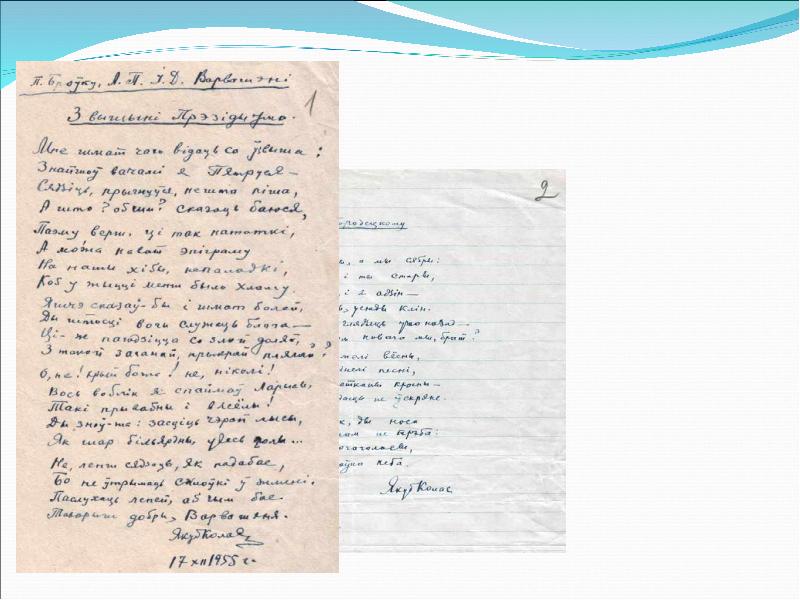 П. Броўку, Л. П. і Д. Варвашэні
1
З вышыні Прэзідыума.
Мне шмат чаго відаць со ўзвыша:
Знайшоў вачамі я Петруся —
Сядзіць, прыгнуўся, нешта піша,
А што? аб чым? сказаць баюся,
Паэму верш, ці так нататкі,
А можа нават эпіграму
На нашы хібы, непаладкі,
Каб у жыцці менш было хламу.
Яшчэ сказаў-бы і шмат болей,
Ды штосці вочы служаць блага —
Ці-ж пагодзішся со злой долей,
З такой заганай, прыкрай
О, не! крый божа! не, ніколі!
Вось воблік я спаймаў Ларысы,
Такі прывабны і вясёлы!
Ды зноў-жа: засціць чэрап лысы,
Як шар більярдны, увесь голы...
Не, лепш сядзець, як падабае,
Бо не ўтрымаць смяюкі ў жмені.
Паслухаць лепей, аб чым бае
Таварыш добры, Варвашэня.
Якуб Колас
17 XII 1955 г.
2
ы, а мы сябры:
і ты стары,
і я адзін —
усюды клін.
глядзіць
новага мы, брат?
вёсны,
песні,
кросны —
не ўскрэсне.
к, ды носа
не трэба:
неба.
Якуб Колас